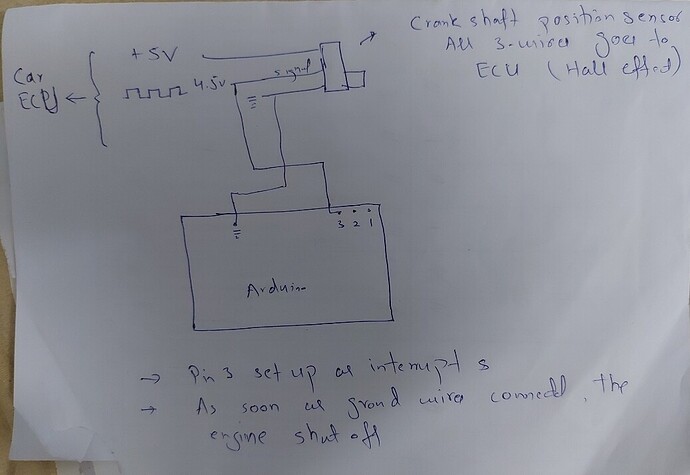 Crank shaft position sensor
All 3-wires goes to
ECU (Hall effect)
+5V
Car
ECU
4.5v
signal
3 2 1
Arduino
→ Pin 3 set up as interrupt s
→ As soon as grond wires connectd, the
engine shut off